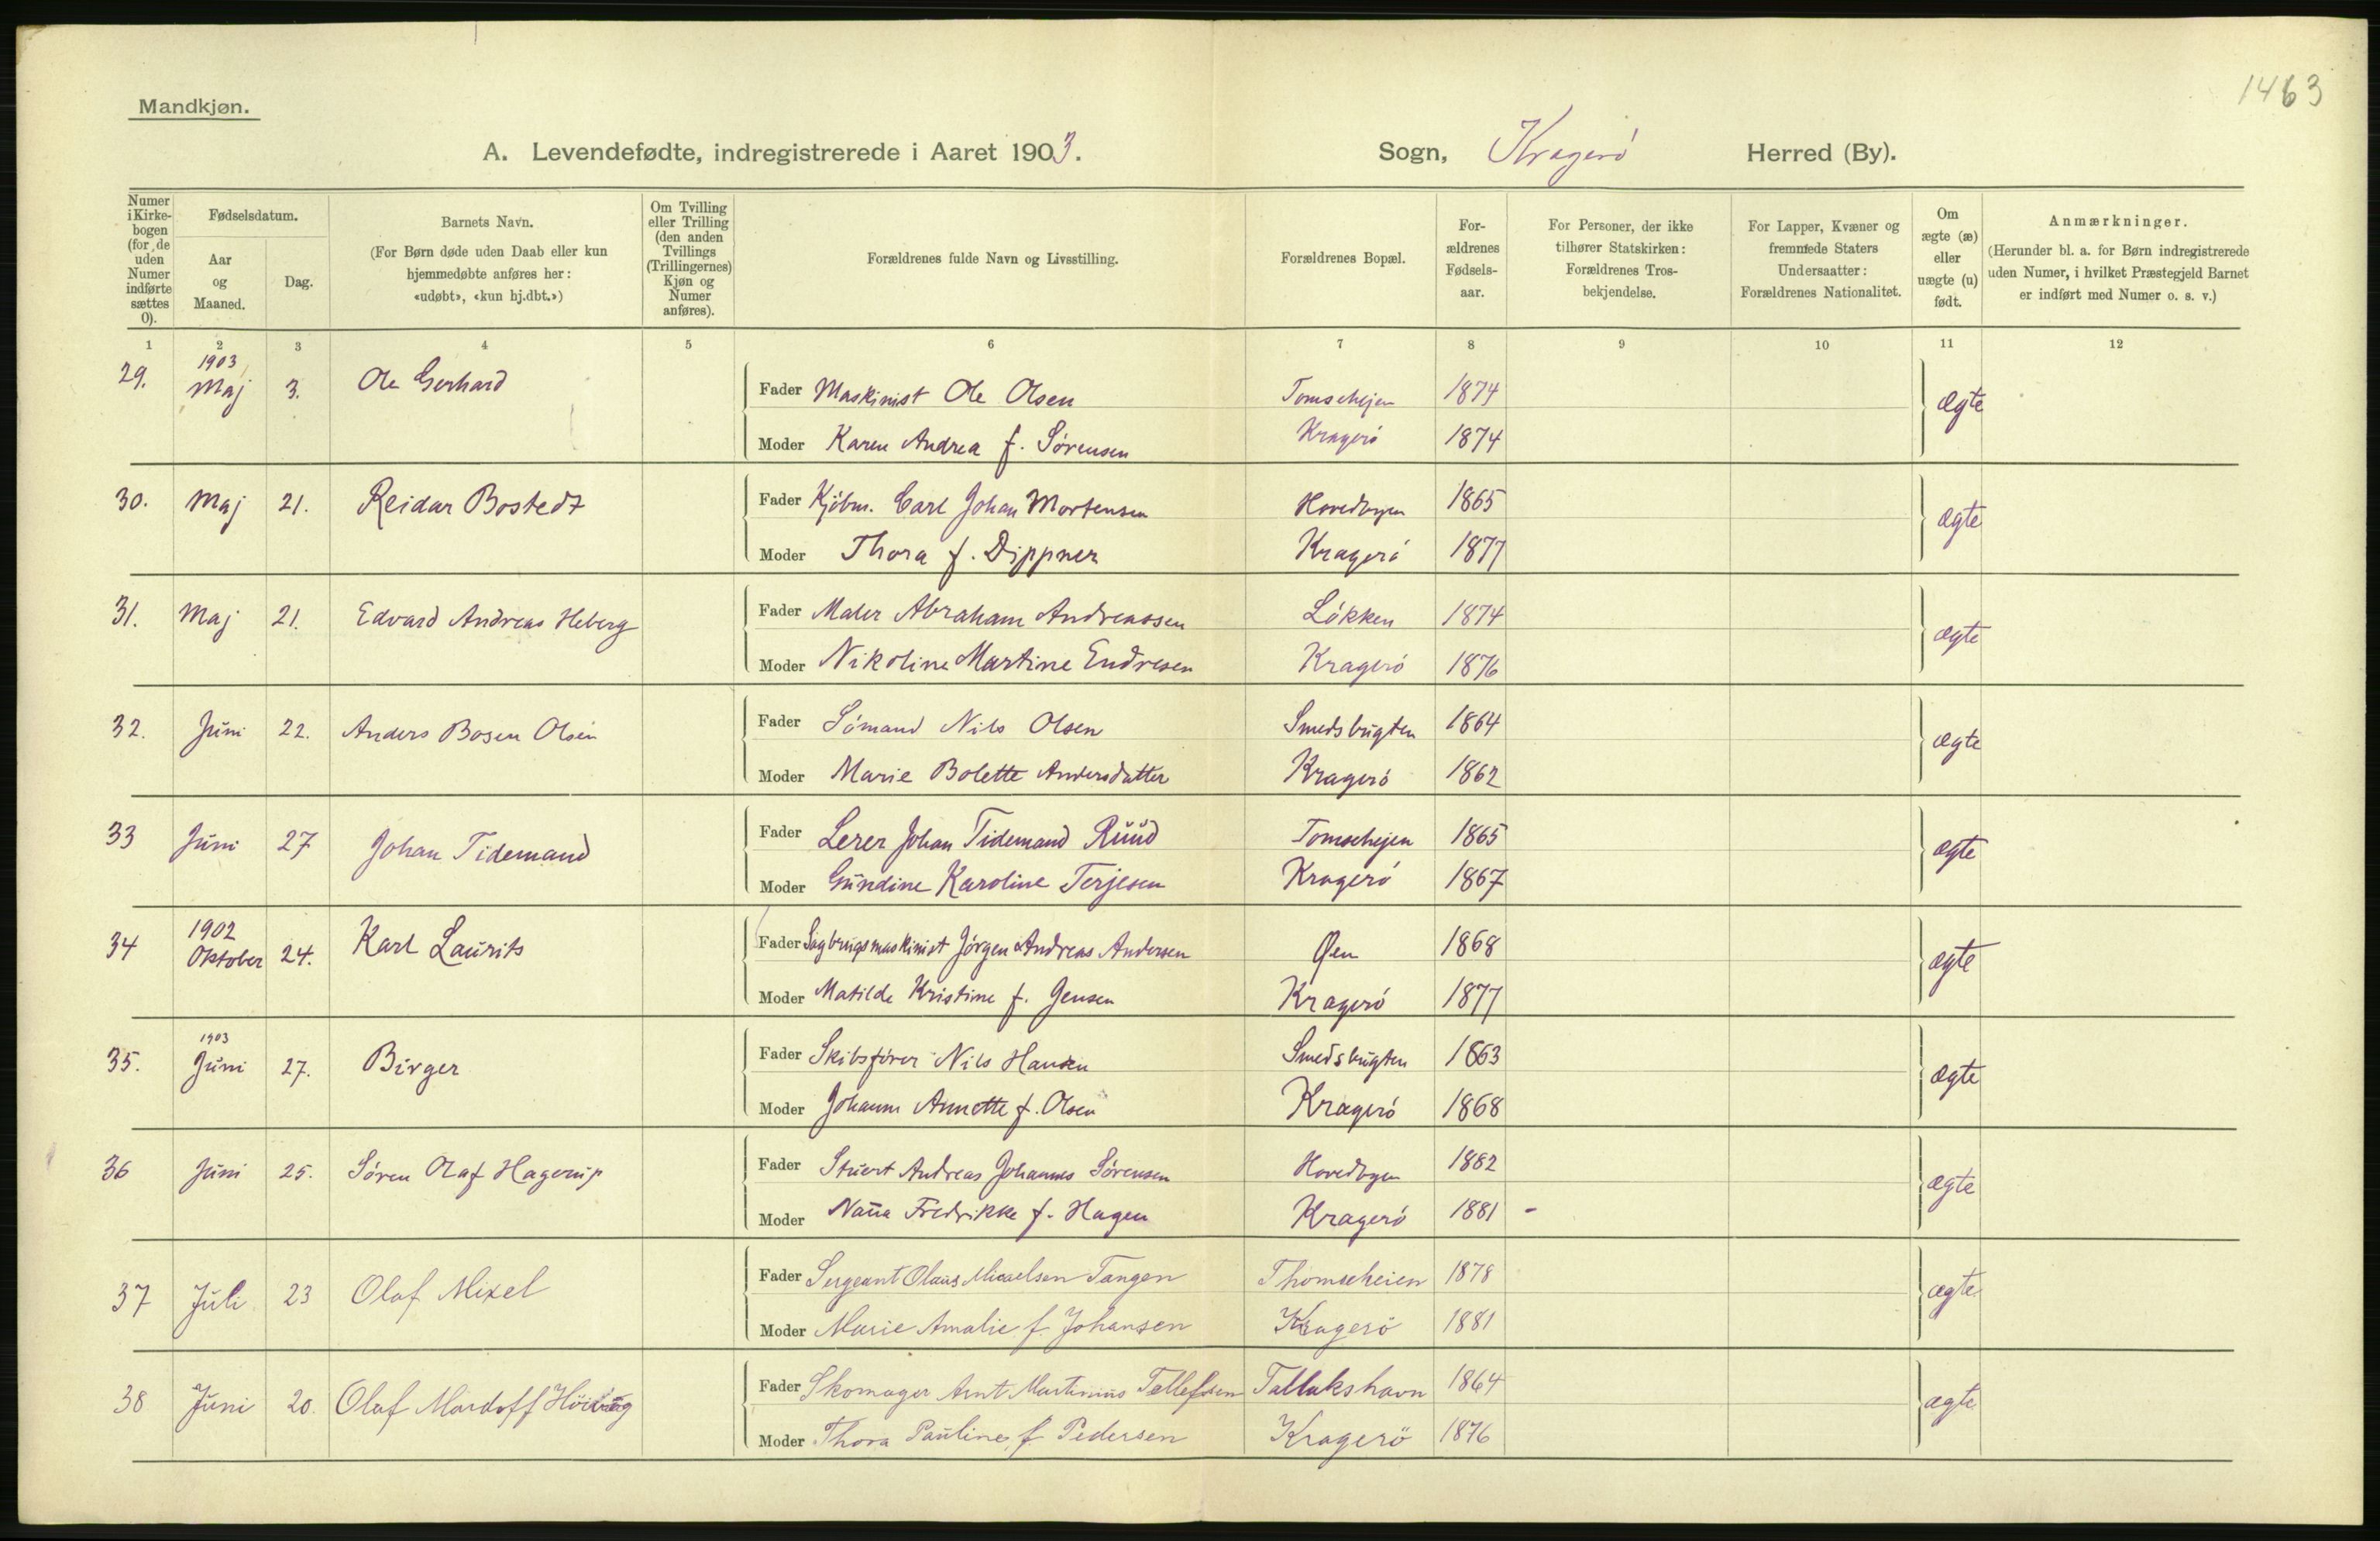 1463
Mandkjøn.
A. Levendefødte, indregistrerede i Aaret 1903. Sogn, Kragerö Herred (By).
Numer i Kirke-bogen (for de uden Numer indførte sættes 0).
Fødselsdatum.
Aar og Maaned.
Dag.
Barnets Navn.
(For Børn døde uden Daab eller kun hjemmedøbte anføres her: «udøbt», «kun hj.dbt.»)
Om Tvilling eller Trilling (den anden Tvillings (Trillingernes) Kjøn og Numer anføres).
Forældrenes fulde Navn og Livsstilling.
Forældrenes Bopæl.
For-ældrenes Fødsels-aar.
For Personer, der ikke tilhører Statskirken: Forældrenes Tros-bekjendelse.
For Lapper, Kvæner og fremmede Staters Undersaatter: Forældrenes Nationalitet.
Om ægte (æ) eller uægte (u) født.
Anmærkninger.
(Herunder bl. a. for Børn indregistrerede uden Numer, i hvilket Præstegjeld Barnet er indført med Numer o. s. v.)
1 2 3 4 5 6 7 8 9 10 11 12
29. 1903 Maj 3. Ole Gerhard Fader Maskinist Ole Olsen Tomsehejen 1874 ægte
Moder Karen Andrea f. Sörensen Kragerö 1874
30. Maj 21. Reidar Bostedt Fader Kjöbm. Carl Johan Mortensen Hovedbyen 1865 ægte
Moder Thora f. Dippner Kragerö 1877
31. Maj 21. Edvard Andreas Heberg Fader Maler Abraham Andreassen Lökken 1874 ægte
Moder Nikoline Martine Endresen Kragerö 1876
32. Juni 22. Anders Bosen Olsen Fader Sömand Nils Olsen Smedsbugten 1864 ægte
Moder Marie Bolette Andersdatter Kragerö 1862
33 Juni 27 Johan Tidemand Fader Lerer Johan Tidemand Ruud Tomsehejen 1865 ægte
Moder Gundine Karoline Terjesen Kragerö 1867
34 1902 Oktober 24. Karl Laurits Fader Sagbrugsmaskinist Jörgen Andreas Andersen Øen 1868 ægte
Moder Matilde Kristine f. Jensen Kragerö 1877
35. 1903 Juni 27. Birger Fader Skibsförer Nils Hansen Smedsbugten 1863 ægte
Moder Johanne Annette f. Olsen Kragerö 1868
36 Juni 25. Sören Olaf Hagerup Fader Stuert Andreas Johannes Sörensen Hovedbyen 1882 ægte
Moder Nana Fredrikke f. Hagen Kragerö 1881 -
37 Juli 23 Olaf Mixel Fader Sergeant Olaus Micaelsen Tangen Thomseheien 1878 ægte
Moder Marie Amalie f. Johansen Kragerö 1881
38 Juni 20. Olaf Mardoff Fader Skomager Arnt Martinius Tellefsen Tallakshavn 1864 ægte
Moder Thora Pauline f Pedersen Kragerö 1876